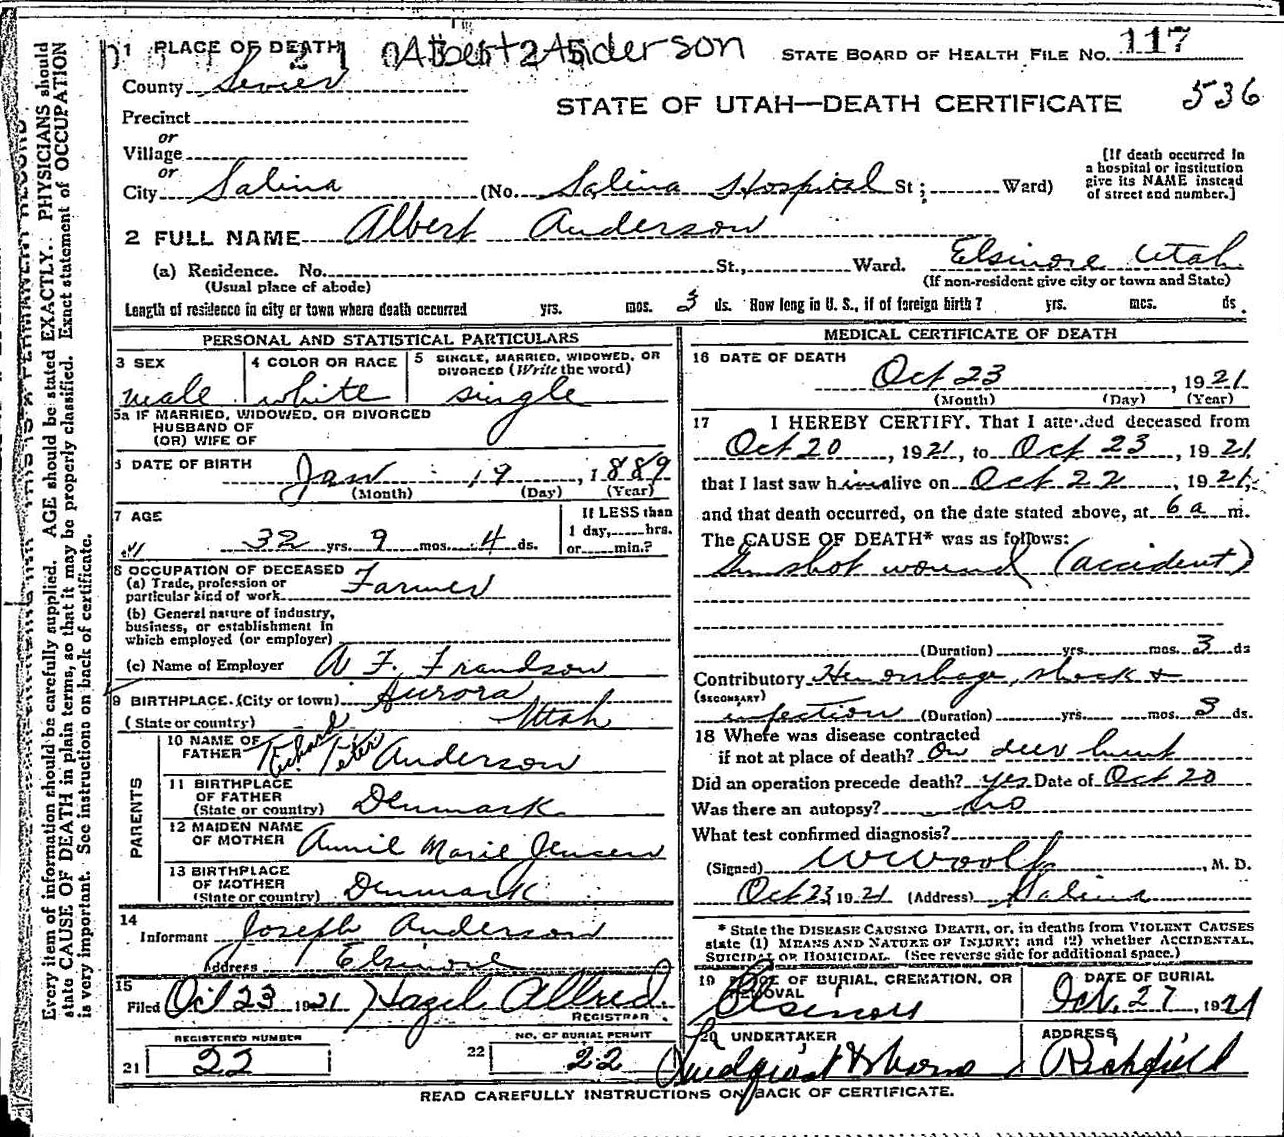 1 PLACE OF DEATH Albert Anderson STATE BOARD OF HEALTH FILE No. 117
County Sevier
STATE OF UTAH—DEATH CERTIFICATE 536
Precinct
or
Village
or
City Salina (No. Salina Hospital St; Ward)
[If death occurred in a hospital or institution give its NAME instead of street and number.]
2 FULL NAME Albert Anderson
(a) Residence. No. St., Ward. Elsinore Utah
(Usual place of abode) (If non-resident give city or town and State)
Length of residence in city or town where death occurred yrs. mos. 3 ds. How long in U. S., if of foreign birth? yrs. mos. ds.
PERSONAL AND STATISTICAL PARTICULARS
3 SEX male
4 COLOR OR RACE white
5 SINGLE, MARRIED, WIDOWED, OR DIVORCED (Write the word) single
5a IF MARRIED, WIDOWED, OR DIVORCED
HUSBAND OF
(OR) WIFE OF
6 DATE OF BIRTH Jan 19, 1889
(Month) (Day) (Year)
7 AGE 32 yrs. 9 mos. 4 ds.
If LESS than
1 day, hrs.
or min.?
8 OCCUPATION OF DECEASED
(a) Trade, profession or
particular kind of work Farmer
(b) General nature of industry,
business, or establishment in
which employed (or employer)
(c) Name of Employer A. F. Frandson
9 BIRTHPLACE. (City or town) Aurora
(State or country) Utah
PARENTS
10 NAME OF FATHER Richard Peter Anderson
11 BIRTHPLACE
OF FATHER
(State or country) Denmark
12 MAIDEN NAME
OF MOTHER Annie Marie Jensen
13 BIRTHPLACE
OF MOTHER
(State or country) Denmark
14
Informant Joseph Anderson
Address Elsinore
15
Filed Oct 23 1921 Hazel Allred
REGISTRAR.
REGISTERED NUMBER
21 22
NO. OF BURIAL PERMIT
22 22
MEDICAL CERTIFICATE OF DEATH
16 DATE OF DEATH
Oct 23, 1921
(Month) (Day) (Year)
17 I HEREBY CERTIFY, That I attended deceased from
Oct 20, 1921, to Oct 23, 1921
that I last saw him alive on Oct 22, 1921,
and that death occurred, on the date stated above, at 6 a m.
The CAUSE OF DEATH* was as follows:
Gunshot wound (accident)
(Duration) yrs. mos. 3 ds
Contributory Hemorrhage, shock +
(SECONDARY)
infection (Duration) yrs. mos. 3 ds.
18 Where was disease contracted
if not at place of death? On deer hunt
Did an operation precede death? yes Date of Oct 20
Was there an autopsy? no
What test confirmed diagnosis?
(Signed) W W Woolf, M. D.
Oct 23 1921 (Address) Salina
* State the DISEASE CAUSING DEATH, or, in deaths from VIOLENT CAUSES
state (1) MEANS AND NATURE OF INJURY; and (2) whether ACCIDENTAL,
SUICIDAL OR HOMICIDAL. (See reverse side for additional space.)
19 PLACE OF BURIAL, CREMATION, OR
REMOVAL
Elsinore
DATE OF BURIAL
Oct. 27, 1921
20 UNDERTAKER
ADDRESS
Richfield
READ CAREFULLY INSTRUCTIONS ON BACK OF CERTIFICATE.
Every item of information should be carefully supplied. AGE should be stated EXACTLY. PHYSICIANS should
state CAUSE OF DEATH in plain terms, so that it may be properly classified. Exact statement of OCCUPATION
is very important. See instructions on back of certificate.